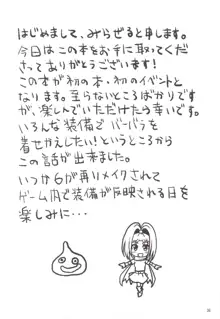 はじめまして、みらぜると申します。
今日はこの本をお手に取ってくだ
さってありがとうございます!
この本が初の本・初のイベントと
なります。至らないところばかりです
が、楽しんでいただけたら幸いです。
いろんな装備でバーバラを
着せかえしたい!というところから
この話が出来ました。
いつか6が再リメイクされて
ゲーム内で装備が反映される日を
楽しみに…